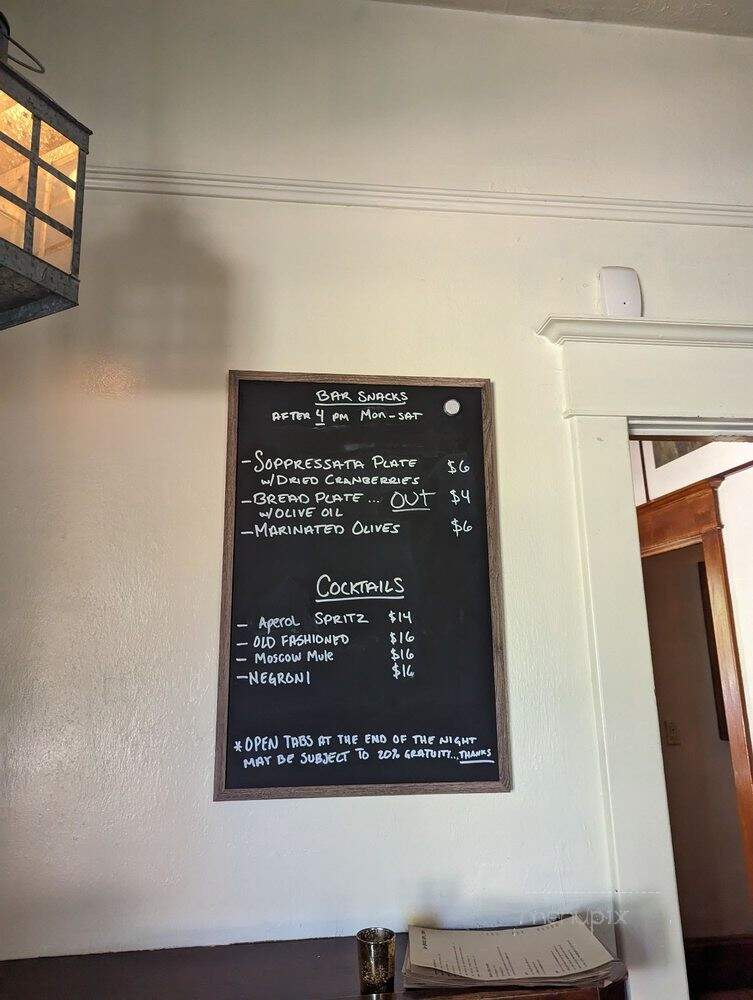 BAR SNACKS
AFTER 4 PM MON-SAT
-SOPPRESSATA PLATE $6
W/DRIED CRANBERRIES
-BREAD PLATE... OUT $4
W/OLIVE OIL
-MARINATED OLIVES $6
COCKTAILS
- Aperol SPRITZ $14
- OLD FASHIONED $16
- Moscow Mule $16
-NEGRONI $16
*OPEN TABS AT THE END OF THE NIGHT
MAY BE SUBJECT TO 20% GRATUITY...THANKS
menupix